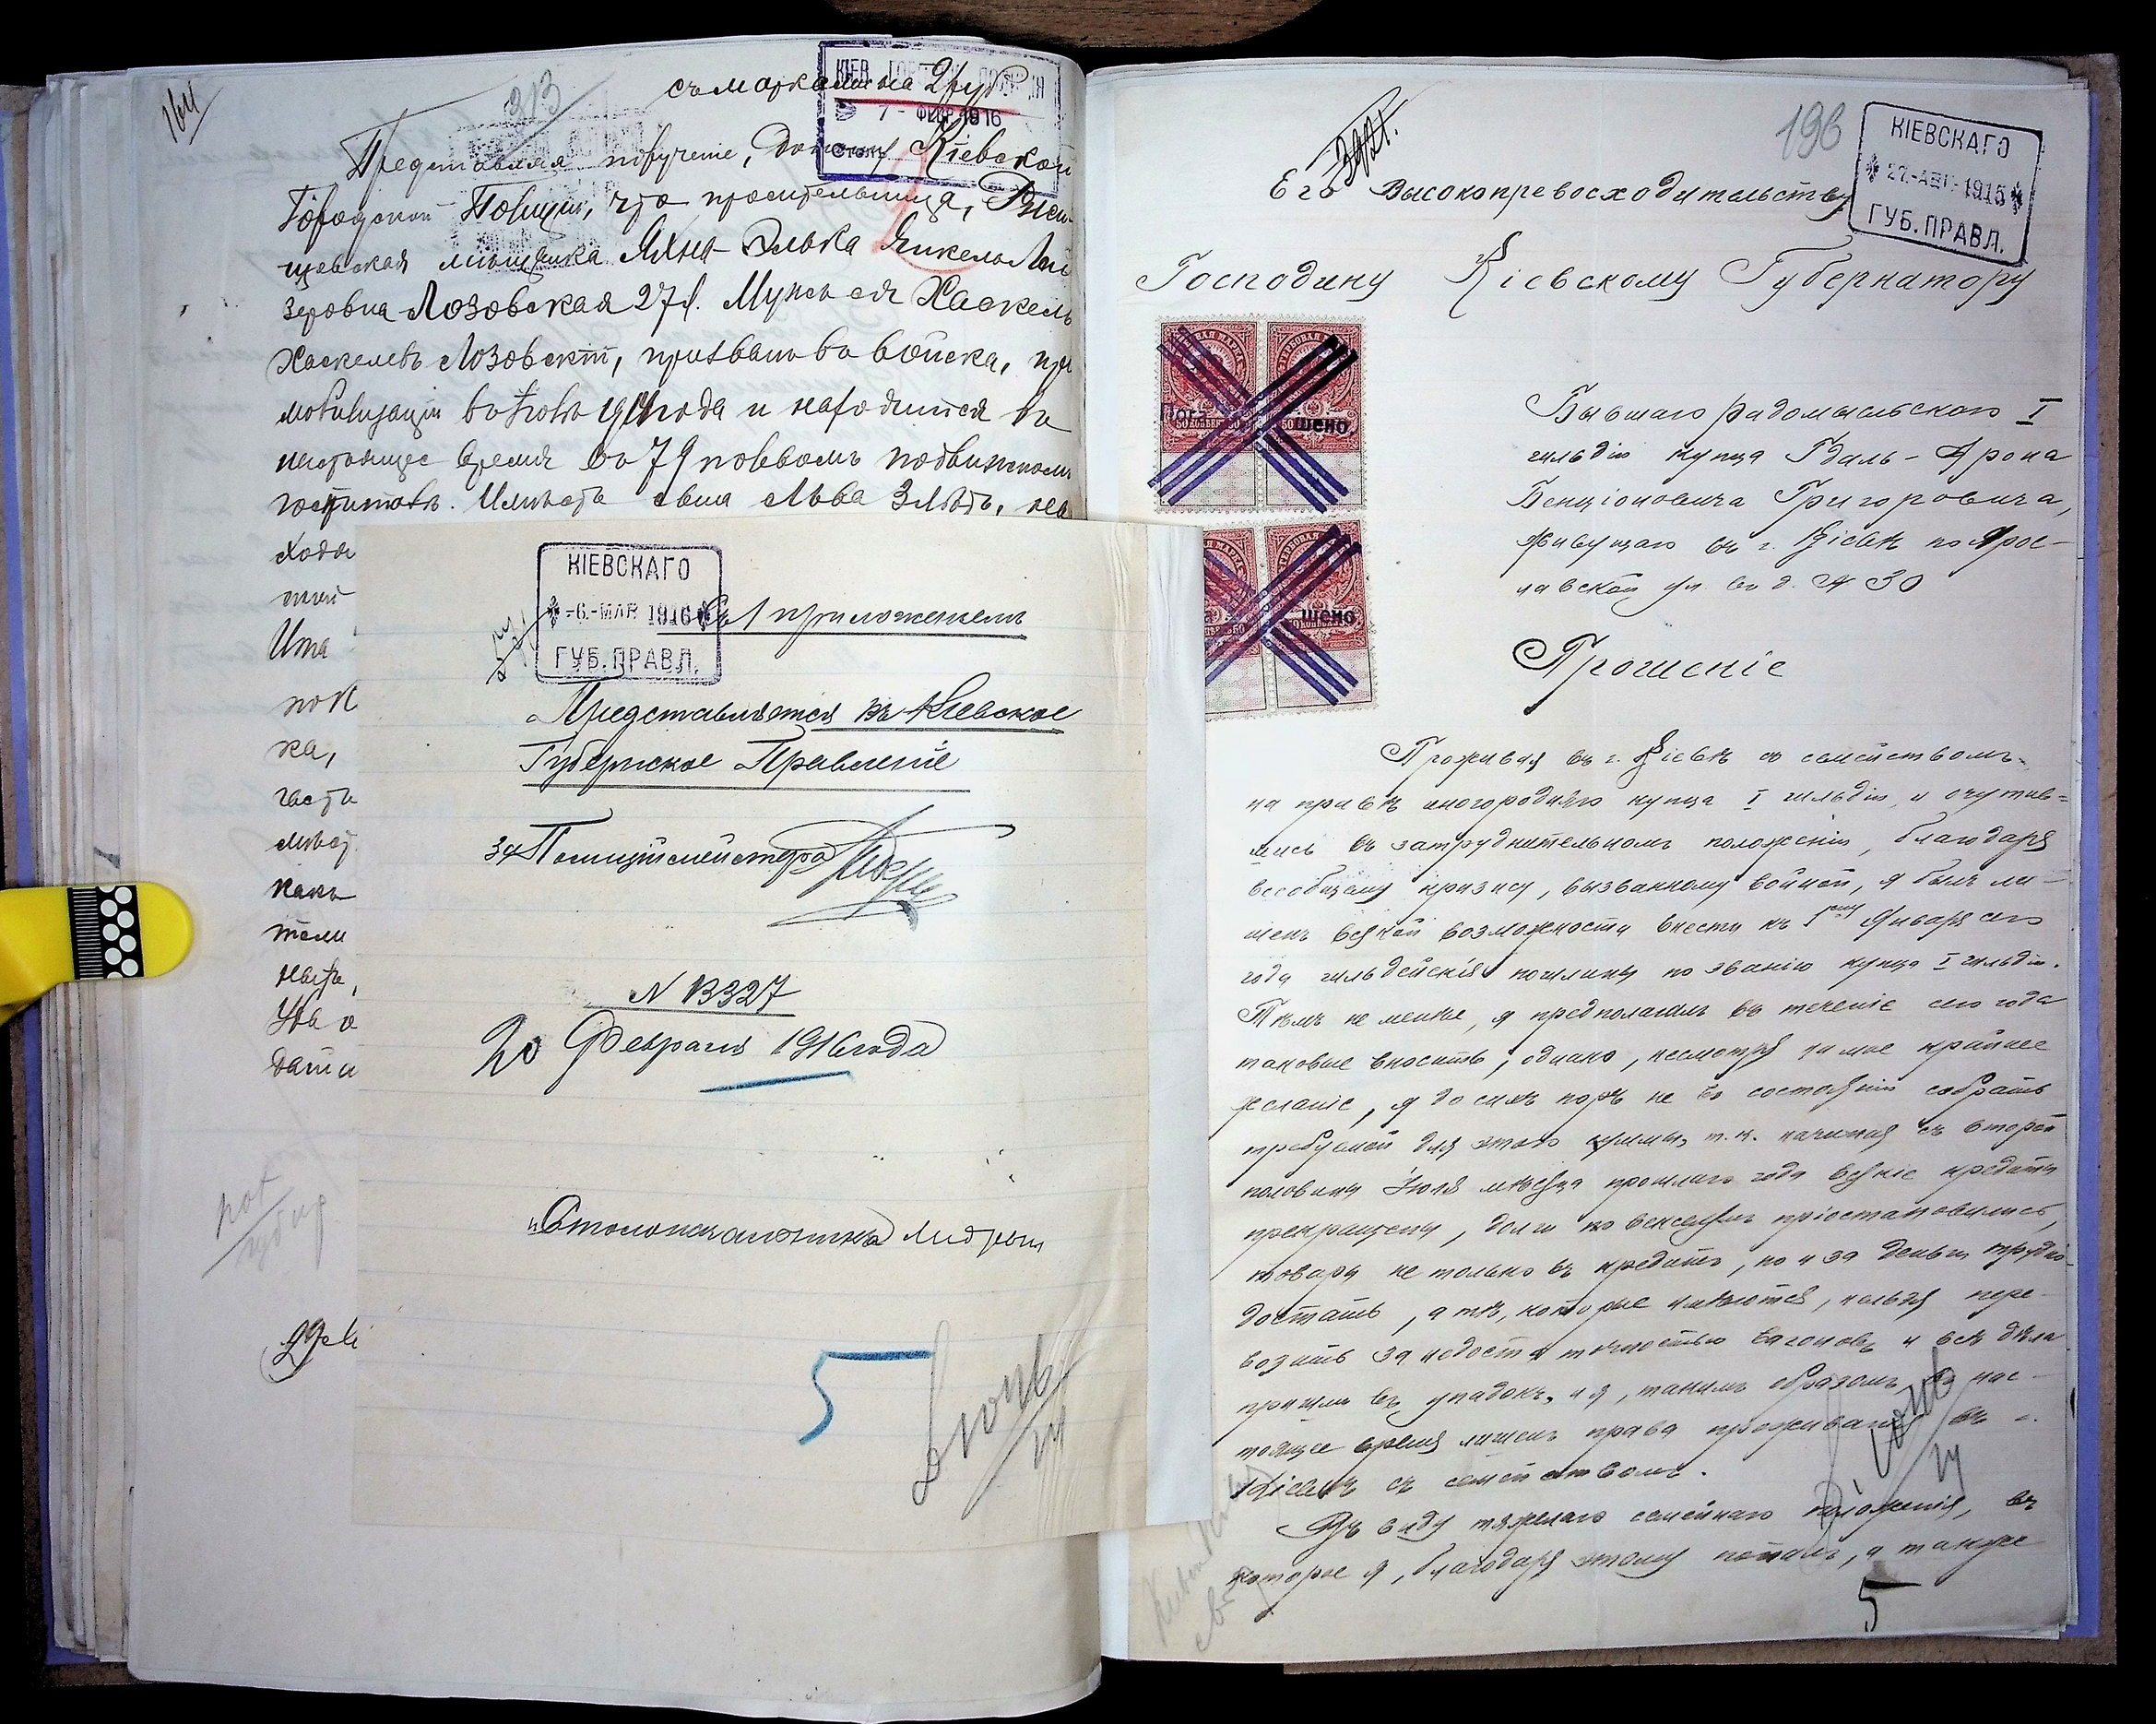 164
313
съ марками на 2 руб
КІЕВ. ГОРОДСК. ПОЛИЦІЯ
7 - ФЕВР 1916
Столъ
Представляя порученіе, доношу Кіевской
Городской Полиціи, что просительница, Ржи
щевская мѣщанка Яхна-Элька Янкель Лей
зеровна Лозовская 27 л. Мужъ ея Хаскель
Хаскелевъ Лозовскій, призванъ въ войска, по
мобилизаціи въ 1914 года и находится въ
настоящее время въ 79 полевомъ подвижномъ
госпиталѣ. Имѣетъ сына Льва 3 лѣтъ, на
ходи
Има
по К
ка,
части
мѣст
какъ
тели
дата
КІЕВСКАГО
-6.-МАР 1916
ГУБ. ПРАВЛ.
Съ 1 приложеніемъ
Представляется въ Кіевское
Губернское Правленіе
За Полиціймейстера
N В327
20 Февраля 1916 года
Столоначальникъ
5
196
КІЕВСКАГО
27.-АВГ.-1915
ГУБ. ПРАВЛ.
Его Высокопревосходительству
Господину Кіевскому Губернатору
Пога шено
шено
Бывшаго Радомысльскаго I
гильдіи купца Гдаль-Арона
Бенціоновича Григоровича,
живущаго въ г. Кіевѣ по Яро-
лавской ул. въ д. № 30
Прошеніе
Проживая въ г. Кіевѣ съ семействомъ
на правѣ иногородняго купца I гильдіи, и очутив=
шись въ затруднительномъ положеніи, благодаря
всеобщему кризису, вызванному войной, я былъ ли-
шенъ всякой возможности внести къ 1му Января сего
года гильдейскія пошлины по званію купца I гильдіи.
Тѣмъ не менѣе, я предполагалъ въ теченіе сего года
таковые вносить, однако, несмотря на мое крайнее
желаніе, я до сихъ поръ не въ состояніи собрать
требуемой для этого суммы, т.к. начиная съ второй
половины Іюля мѣсяца прошлаго года всякіе кредиты
прекращены, долги по векселямъ пріостановились,
товары не только въ кредитъ, но и за деньги трудно
достать, а тѣ, которые имѣются, нельзя пере-
возить за недостаточностью вагоновъ и всѣ дѣла
пришли въ упадокъ, и я, такимъ образомъ, въ нас-
тоящее время лишенъ права проживанія въ г.
Кіевѣ съ семействомъ.
Въ виду тяжелаго семейнаго положенія, въ
которое я, благодаря этому попалъ, а также
5